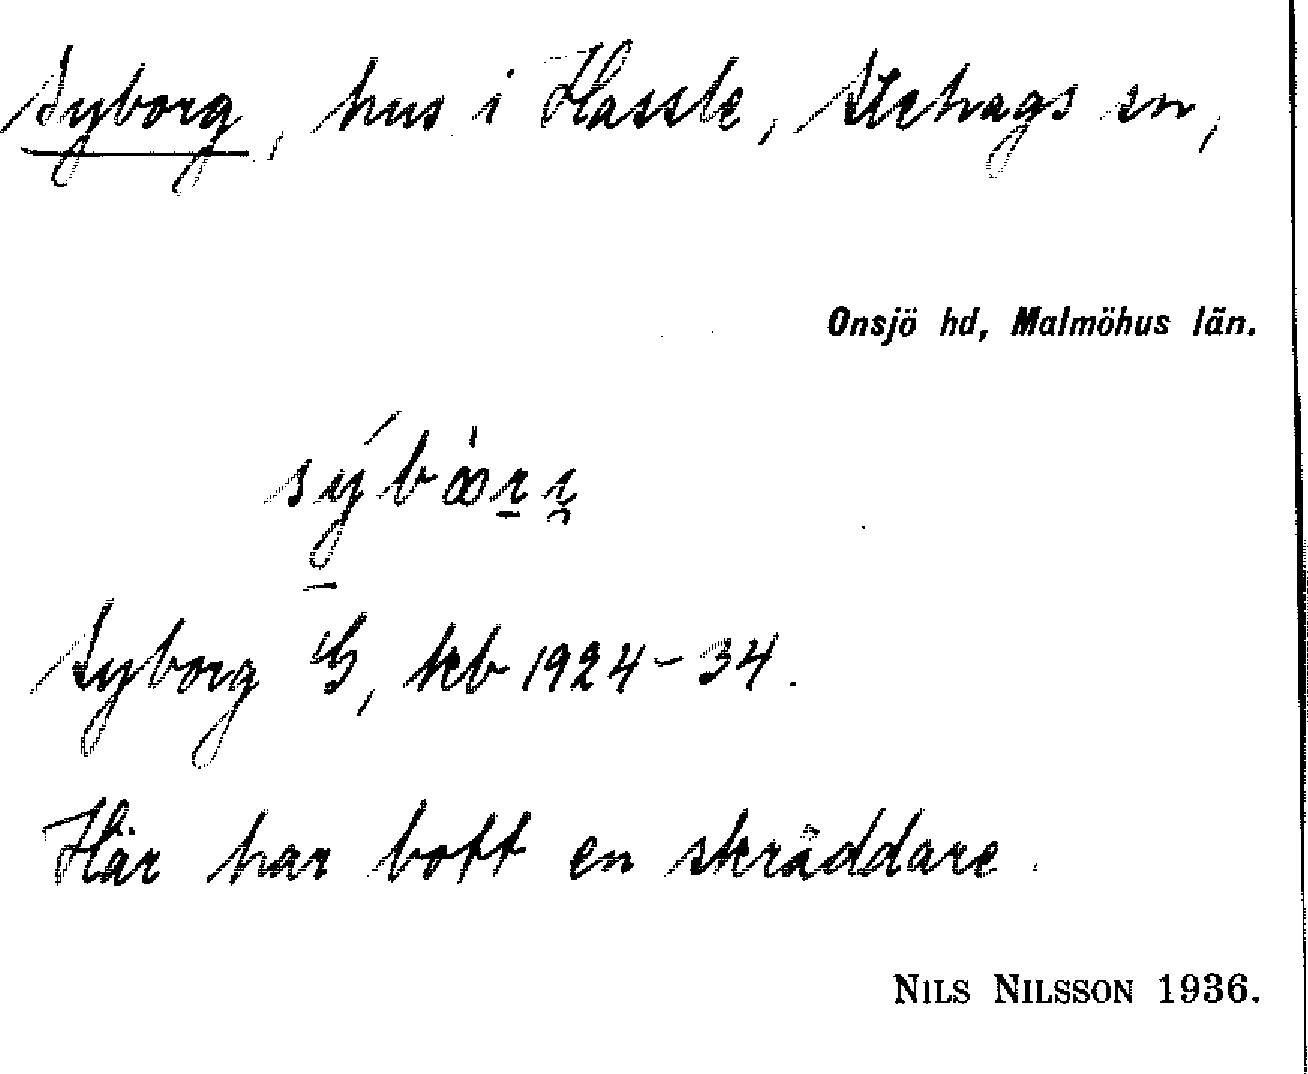 Syborg, hus i Hassle, Stehags sn,
Onsjö hd, Malmöhus län.
Syborg G, kb 1924-34.
Här har bott en skräddare.
NILS NILSSON 1936.